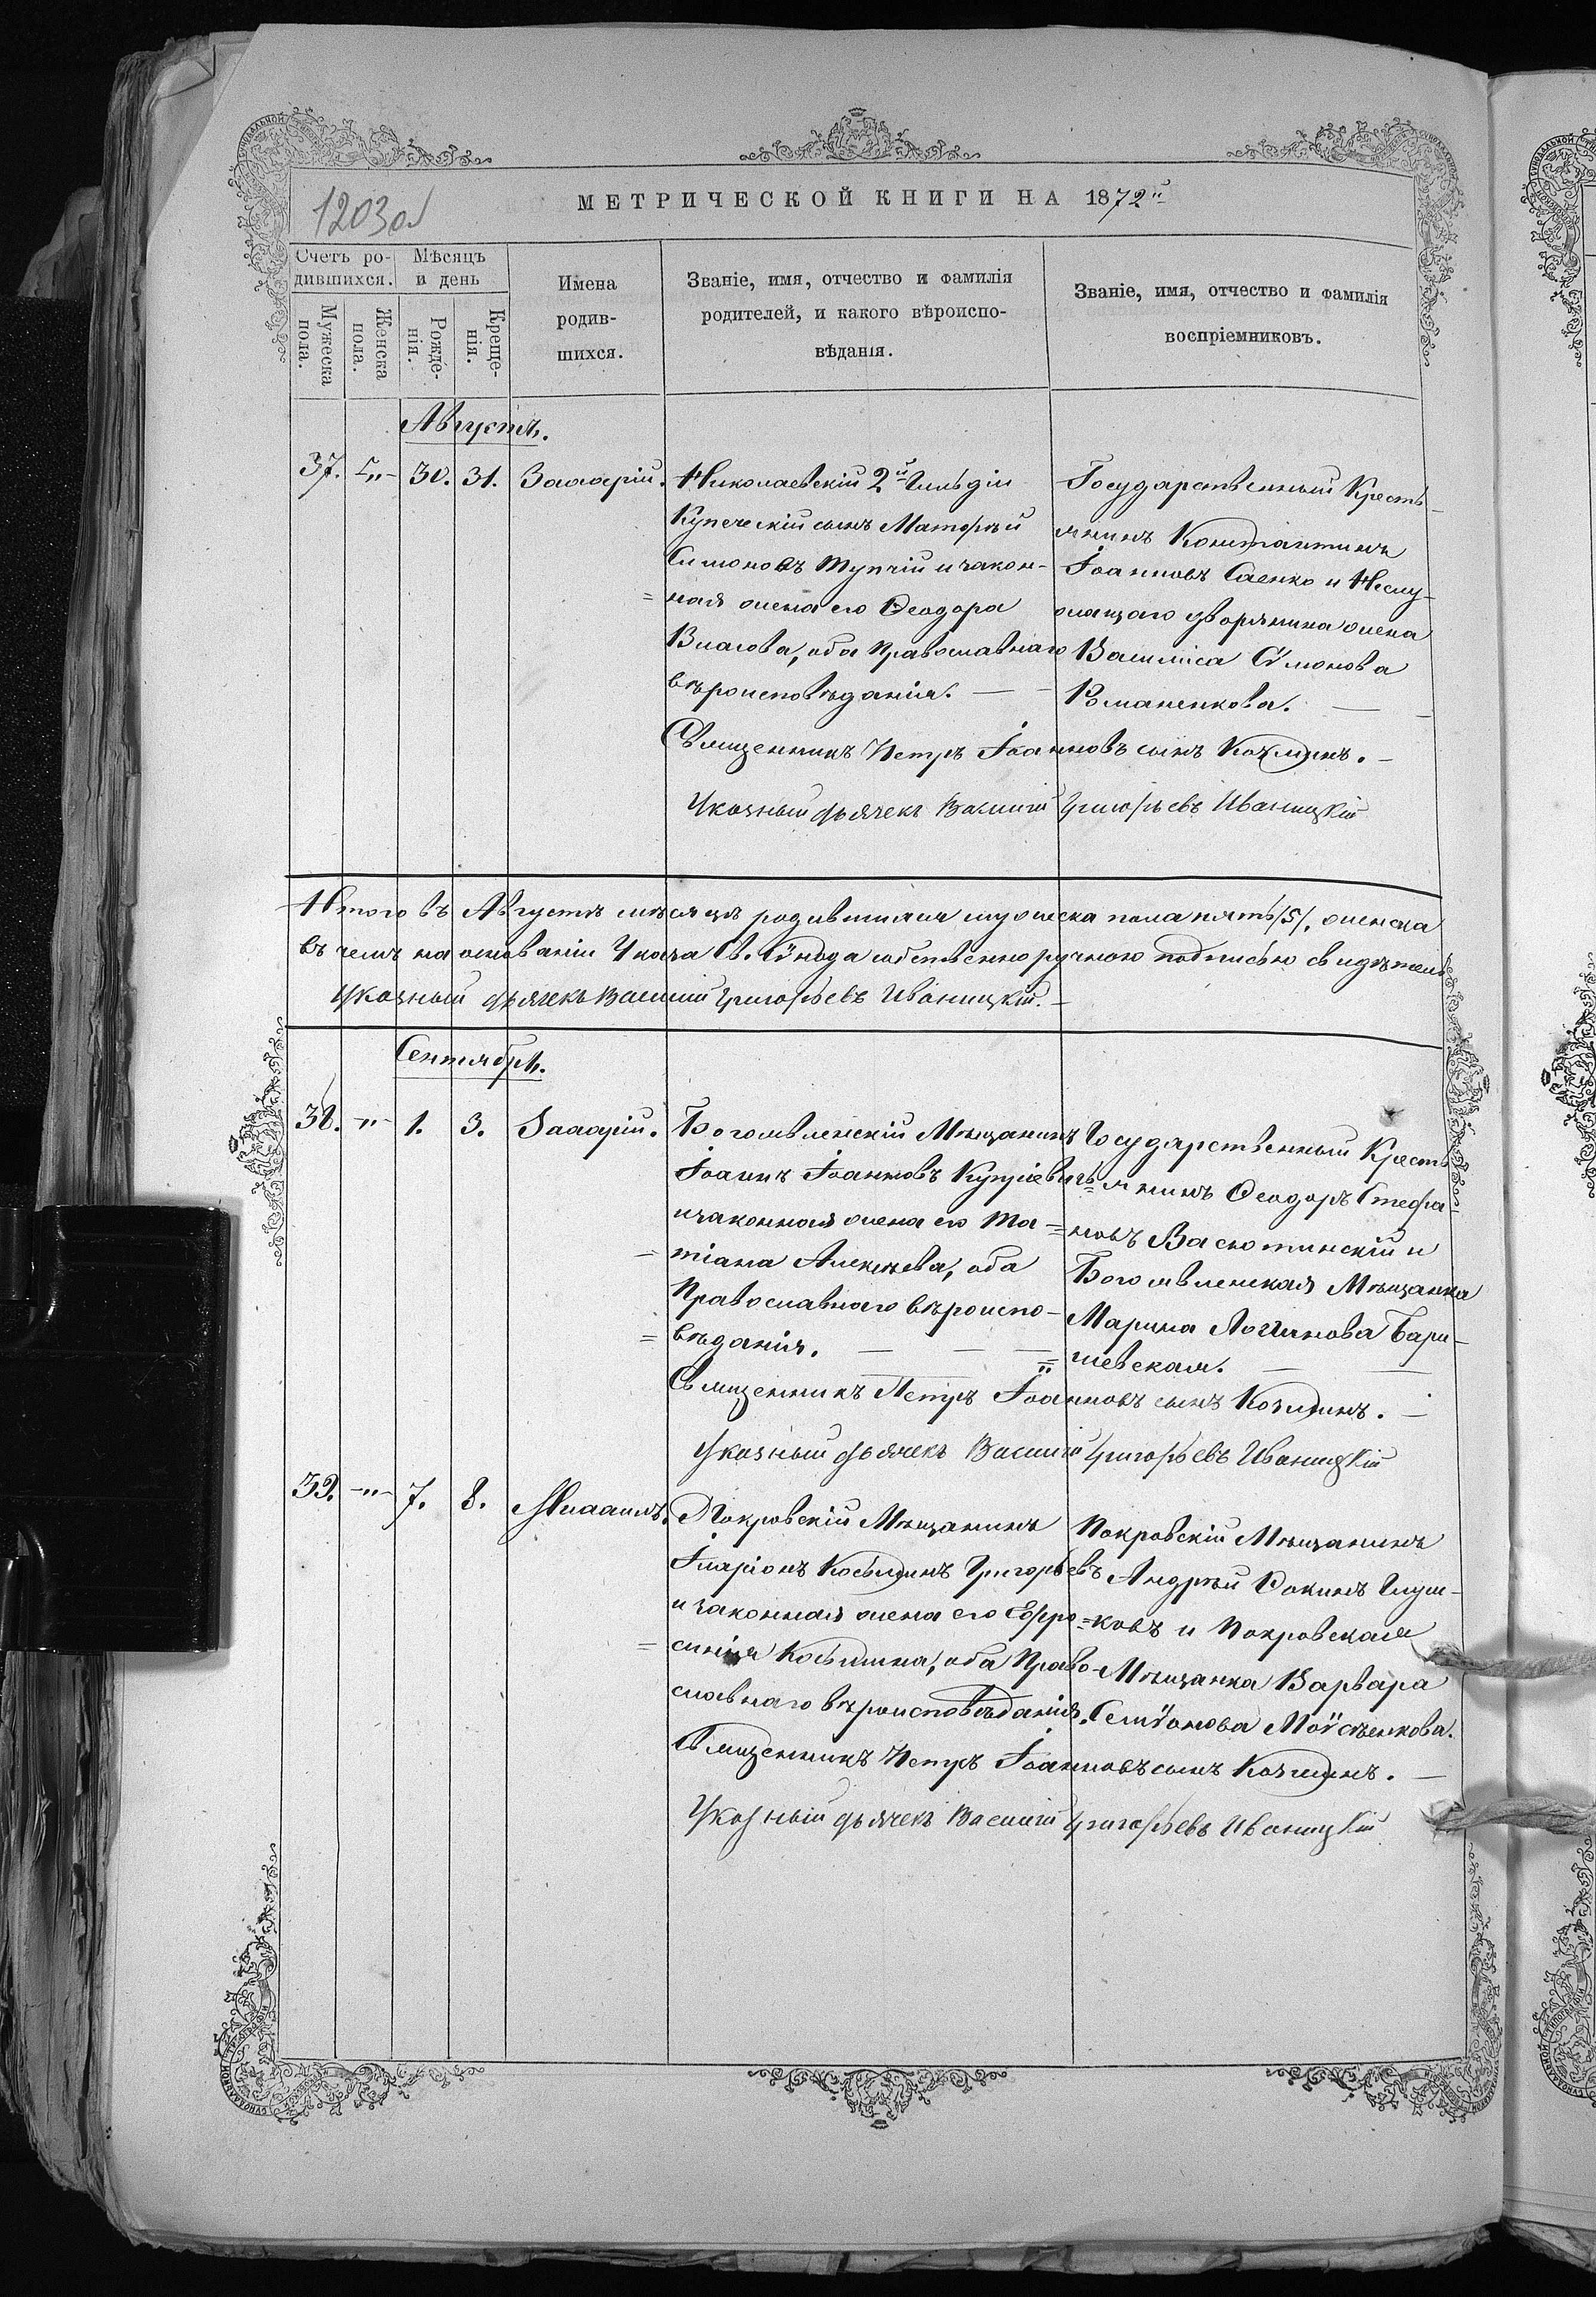 1203 об
МЕТРИЧЕСКОЙ КНИГИ НА 1872й
Счетъ ро-
дившихся.
Мѣсяцъ
и день
Мужеска
пола.
Женска
пола.
Рожде-
нія.
Креще-
нія.
Имена
родив-
шихся.
Званіе, имя, отчество и фамилія
родителей, и какого вѣроиспо-
вѣданія.
Званіе, имя, отчество и фамилія
воспріемниковъ.
Августъ.
37. 30. 31. Захарій.
Николаевскій 2й Гильдіи
Купеческій сынъ Матфѣй
Симоновъ Тупчій и закон-
ная жена его Ѳеодора
Власова, оба Православнаго
вѣроисповѣданія.
Государственный Кресть-
янинъ Константинъ
Іоанновъ Саенко и Неслу-
жащаго дворянина жена
Василиса Сѵмонова
Романенкова.
Священникъ Петръ Іоанновъ сынъ Козминъ.
Указный дьячекъ Василій Григорьевъ Иваницкій
Итого въ Августѣ мѣсяцѣ родившихся мужеска пола пять /5/, женска
въ чемъ на основаніи Указа Св. Сѵнода собственноручною подписью свидѣтель
Указный дьячекъ Василій Григорьевъ Иваницкій.
Сентябрь.
38. 1. 3. Захарій.
Богоявленскій Мѣщанинъ
Іоаннъ Іоанновъ Купріевичъ
и законная жена его Та-
тіана Алексѣева, оба
Православнаго вѣроиспо-
вѣданія.
Государственный Кресть-
янинъ Ѳеодоръ Стефа-
новъ Васютинскій и
Богоявленская Мѣщанка
Марина Логинова Бари-
шевская.
Священникъ Петръ Іоанновъ сынъ Козминъ.
Указный дьячекъ Василій Григорьевъ Иваницкій
39. 7. 8. Михаилъ.
Покровскій Мѣщанинъ
Иларіонъ Косьминъ Григорьевъ
и законная жена его Ефро-
синія Косьмина, оба Право-
славнаго вѣроисповѣданія.
Покровскій Мѣщанинъ
Андрей Ѳокинъ Глуш-
ковъ и Покровская
Мѣщанка Варвара
Семіонова Моѵсѣенкова.
Священникъ Петръ Іоанновъ сынъ Козминъ.
Указный дьячекъ Василій Григорьевъ Иваницкій